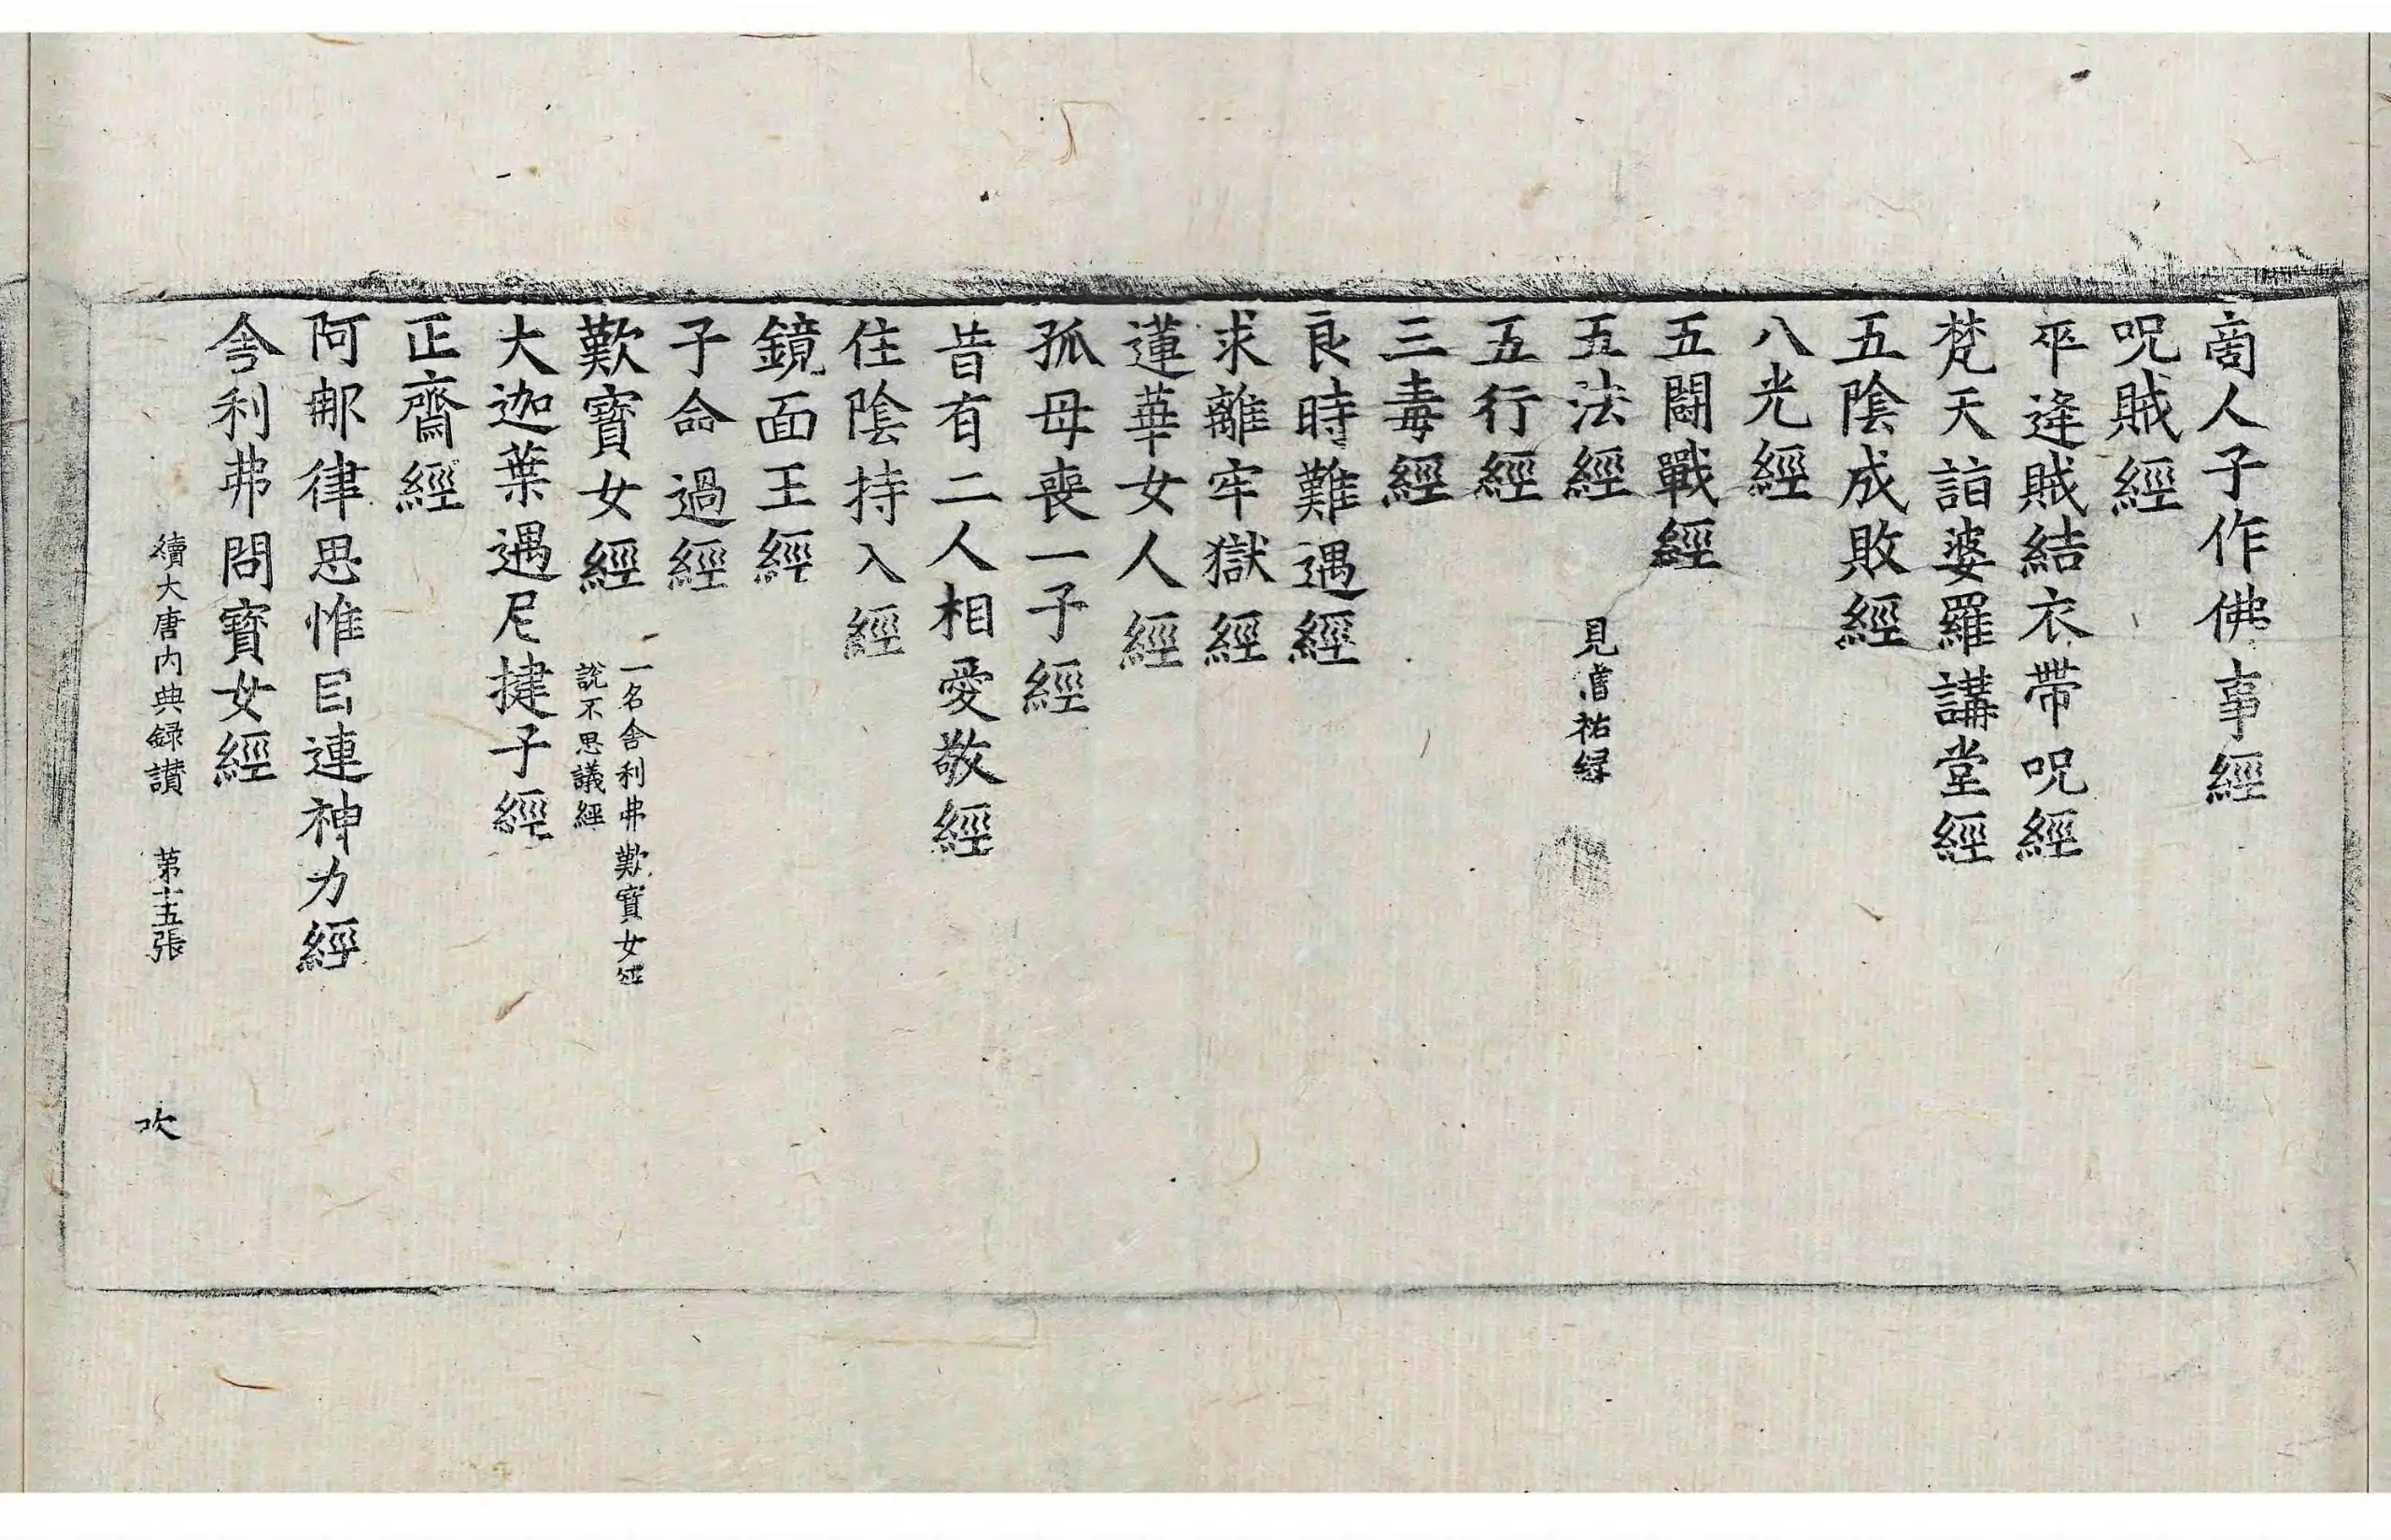 啇人子作佛事經
呪賊經
卒逢賊結衣帶呪經
梵天詣婆羅講堂經
五陰成敗經
八光經
五鬪戰經
五法經 見舊祐録
五行經
三毒經
良時難遇經
求離牢獄經
蓮華女人經
孤母喪一子經
昔有二人相愛敬經
住陰持入經
鏡面王經
子命過經
歎寶女經 一名舍利弗歎寶女經
說不思議經
大迦葉遇尼揵子經
正齋經
阿那律思惟目連神力經
舍利弗問寶女經
續大唐内典録讃 第十五張 吹